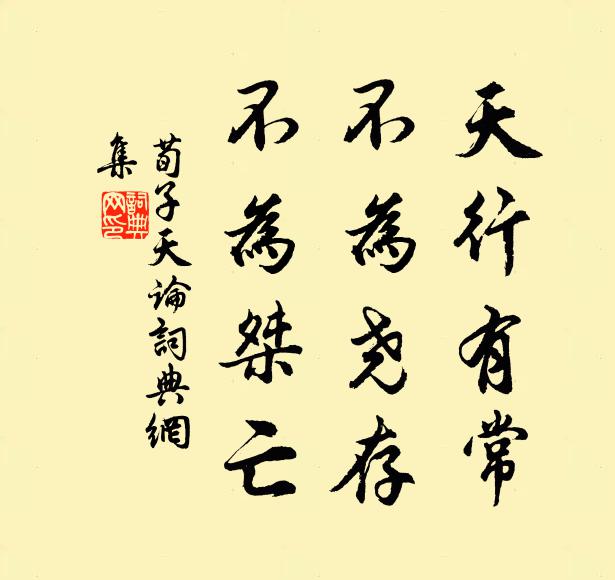 天行有常
不為尧存
不為桀亡
荀子天論詞典網
集
詞典网印